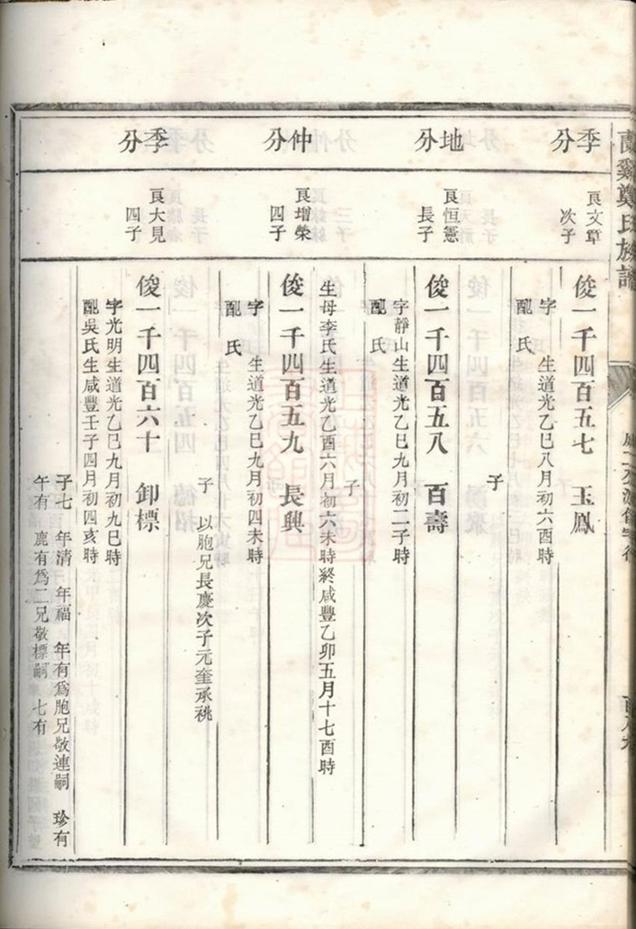 蘭谿鄭氏族譜
季分
良文章
次子
俊一千四百五七　玉鳳
字　生道光乙巳八月初六酉時
配　氏
子
地分
良恒憲
長子
俊一千四百五八　百壽
字靜山生道光乙巳九月初二子時
配　氏
子
仲分
良增榮
四子
生母李氏生道光乙酉六月初六未時終咸豐乙卯五月十七酉時
俊一千四百五九　長興
字　生道光乙巳九月初四未時
配　氏
子　以胞兄長慶次子元奎承祧
季分
良大見
四子
俊一千四百六十　卸標
字光明生道光乙巳九月初九巳時
配吳氏生咸豐壬子四月初四亥時
子七　年清　年福　年有爲胞兄敬連嗣　珍有
午有　鹿有爲二兄敬標嗣　七有